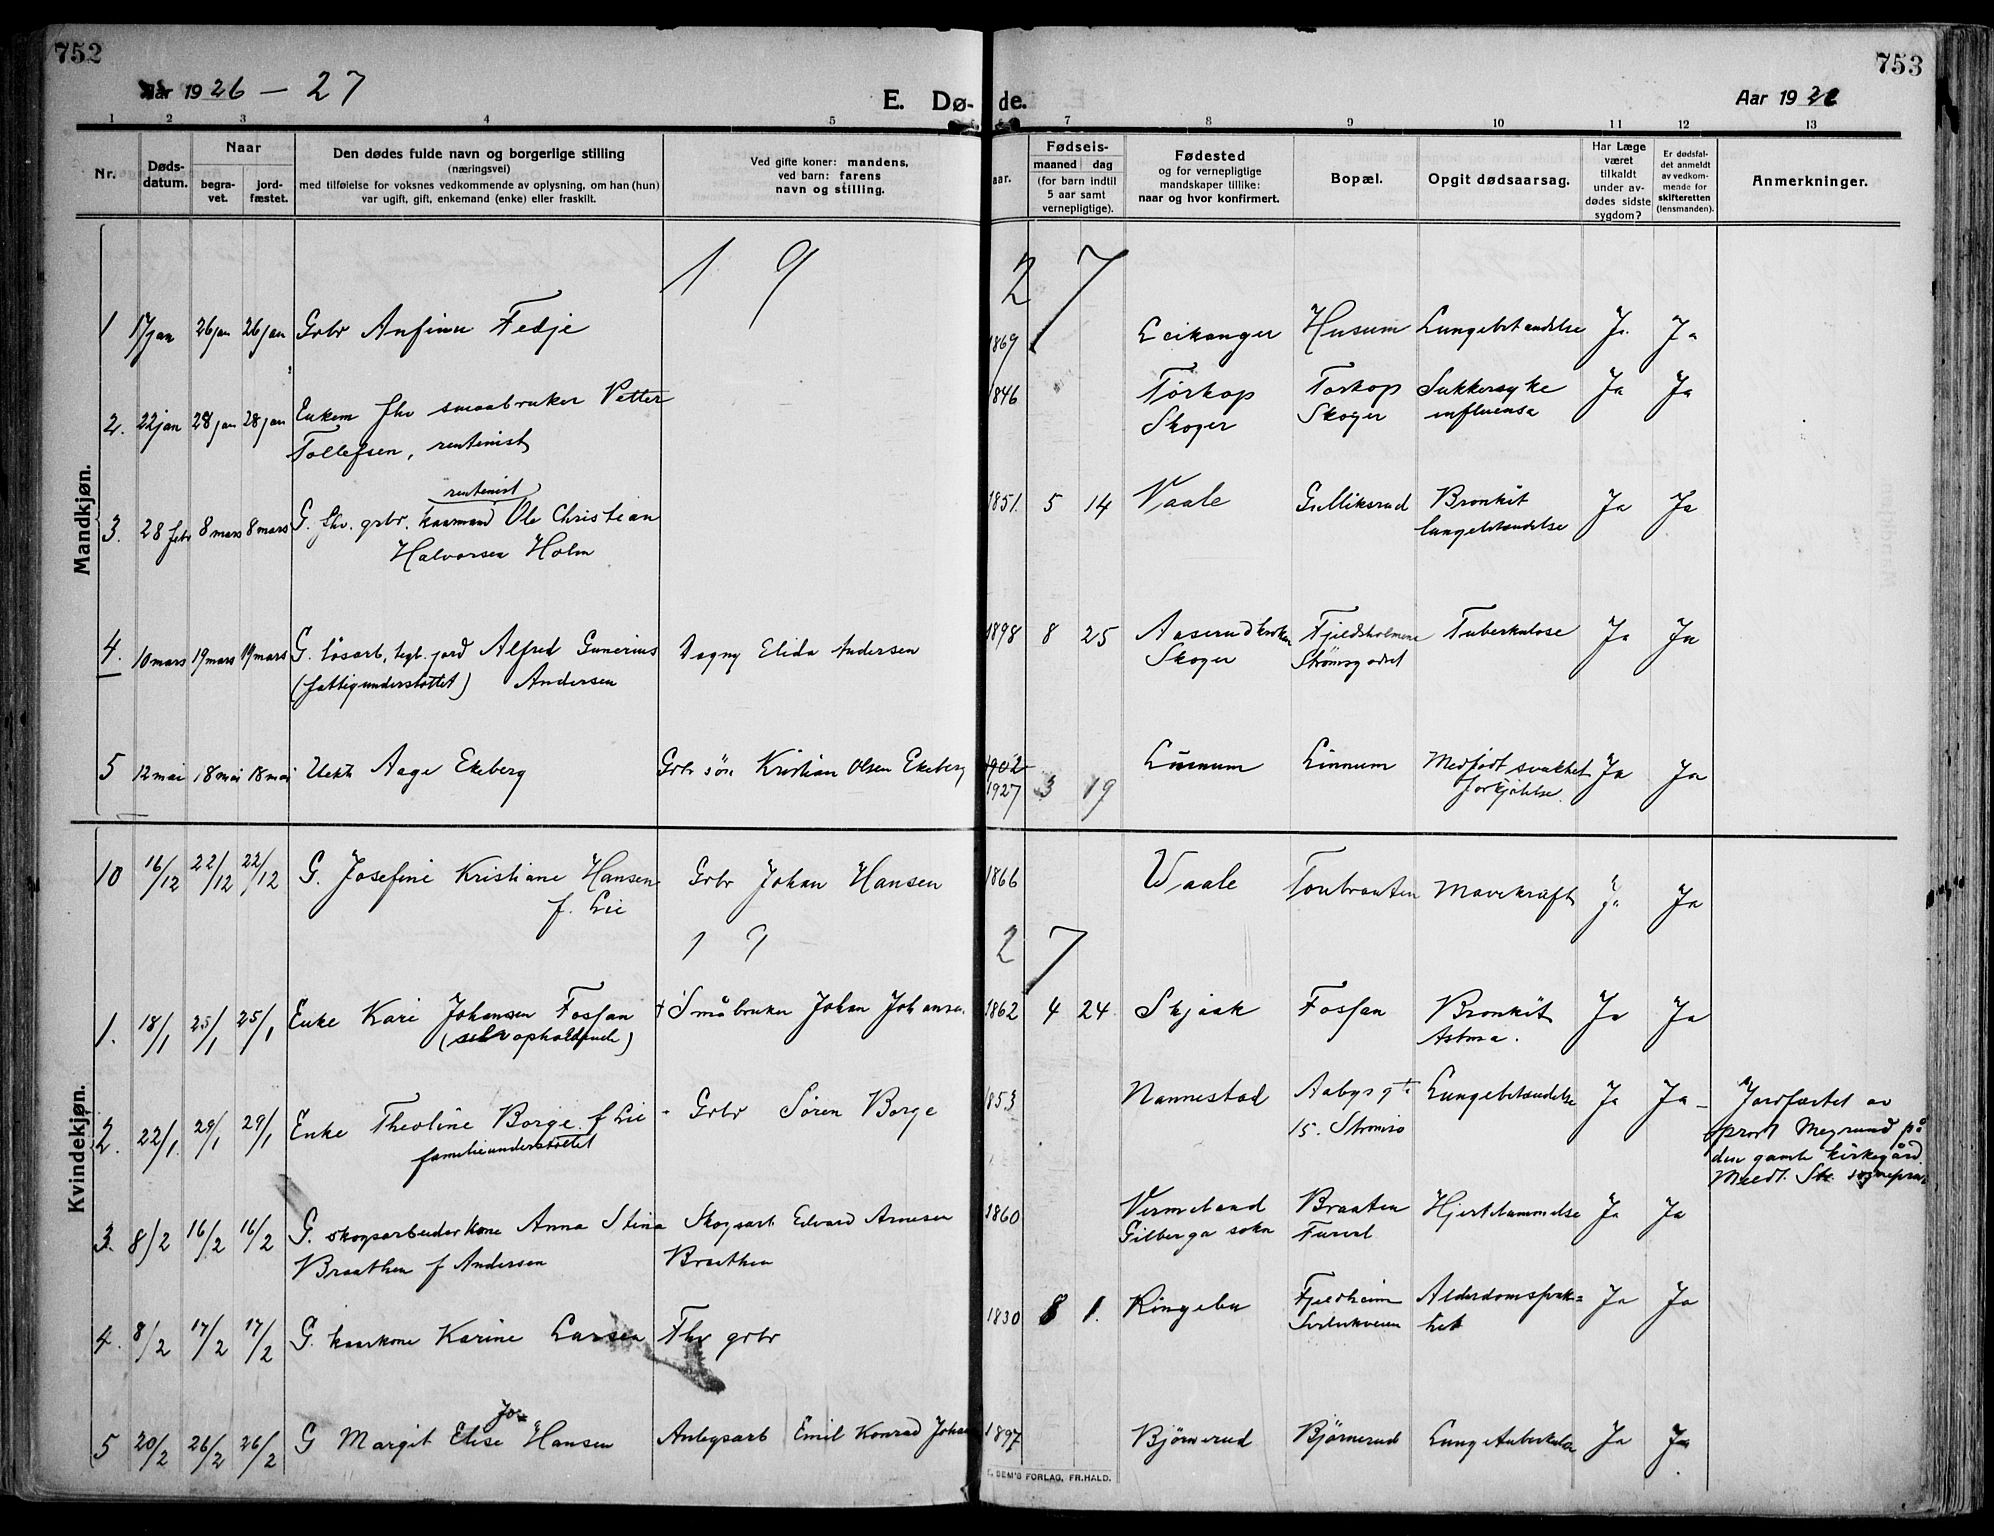 752
753
Aar 1926 - 27
E. Dø-
de.
Aar 192
1 2 3 4 5 7 8 9 10 11 12 13
Nr.
Døds-
datum.
Naar
begra-
vet.
jord-
fæstet.
Den dødes fulde navn og borgerlige stilling
(næringsvei)
med tilføielse for voksnes vedkommende av oplysning, om han (hun)
var ugift, gift, enkemand (enke) eller fraskilt.
Ved gifte koner: mandens,
ved barn: farens
navn og stilling.
aar.
Fødsels-
maaned dag
(for barn indtil
5 aar samt
vernepligtige).
Fødested
og for vernepligtige
mandskaper tillike:
naar og hvor konfirmert.
Bopæl.
Opgit dødsaarsag.
Har Læge
været
tilkaldt
under av-
dødes sidste
sygdom?
Er dødsfal-
det anmeldt
av vedkom-
mende for
skifteretten
(lensmanden).
Anmerkninger.
Mandkjøn.
1 9 2 7
1 17 jan 26 jan 26 jan Grbr Anfinn Fedje 1869 Leikanger Husum Lungebetændelse Ja Ja
2. 22 jan 28 jan 28 jan Enkem fhv smaabruker Petter 1846 Tørkop Torkop Sukkersyke Ja Ja
Tollefsen, rentenist Skoger Skoger influensa
rentenist
3. 28 feb 8 mars 8 mars G. fhv. grbr. kaarmand Ole Christian 1851 5 14 Vaale Gulliksrud Bronkit Ja Ja
Halvorsen Holm lungebetændelse
4. 10 mars 19 mars 19 mars G. løsarb, teglv. jord Alfred Gunerius Dagny Elida Andersen 1898 8 25 Aaserudkroken Fjeldsholmene Tuberkulose Ja Ja
(fattigunderstøttet) Andersen Skoger Strømsgodset
5 12 mai 18 mai 18 mai Uekte Aage Ekeberg Grbr søn Kristian Olsen Ekeberg 1902 Linnum Linnum Medfødt svakhet Ja Ja
1927 3 19 forkjølelse.
Kvindekjøn.
10 16/12 22/12 22/12 G. Josefine Kristiane Hansen Grbr Johan Hansen 1866 Vaale Tonbraaten Mavekræft Ja Ja
f. Lie
1 9 2 7
1. 18/1 25/1 25/1 Enke Kari Johansen Fosfan + Småbruker Johan Johansen 1862 4 24 Skjaak Fosfan Bronkit Ja Ja
Astma.
2. 22/1. 29/1 29/1 Enke Theoline Borge f Lie - Grbr Søren Borge 1853 Nannestad Aabys gt Lungebetændelse Ja Ja - Jordfæstet av
familieunderstøttet 15. Strømsø prost Megrund på
den gamle kirkegård
3. 8/2 16/2 16/2 G. skogsarbeiderkone Anna Stina Skogsarb Edvard Arnesen 1860 Vermeland Braaten Hjertelammelse Ja Ja
Braathen f Andersen Braathen Gilberga sokn
4. 8/2 17/2 17/2 G. kaarkone Karine Larsen Fhv grbr 1830 8 1. Ringebu Fjeldheim Alderdomssvak= Ja Ja
het
5 20/2 26/2 26/2 G Margit Elise Hansen Anlegsarb Emil Konrad Johan 1897 Bjørnerud Bjørnerud Lungetuberkulose Ja Ja
Jo-
SEM'S FORLAG, FR.HALD.